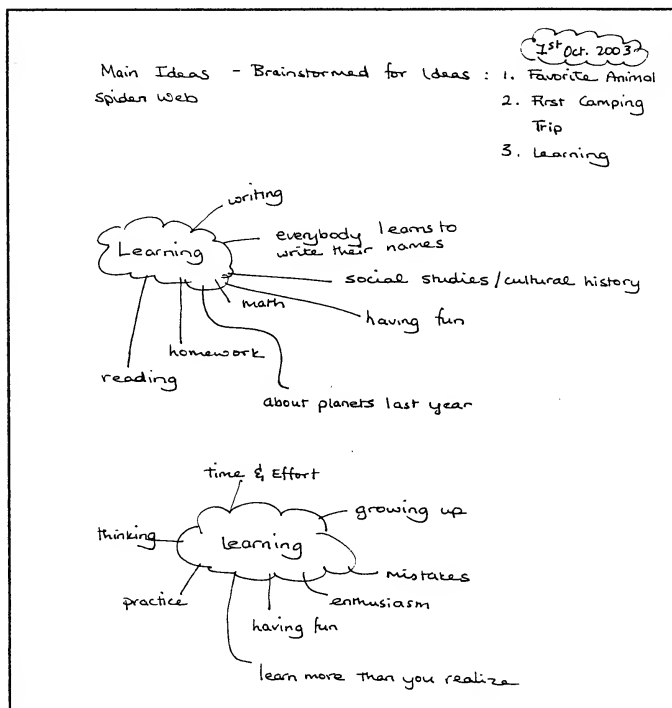 1st Oct. 2003
Main Ideas - Brainstormed for Ideas : 1. Favorite Animal
Spider Web
2. First Camping
Trip
3. Learning
writing
everybody learns to
write their names
Learning
social studies / cultural history
math
having fun
homework
reading
about planets last year
Time & Effort
growing up
thinking
Learning
mistakes
practice
enthusiasm
having fun
learn more than you realize